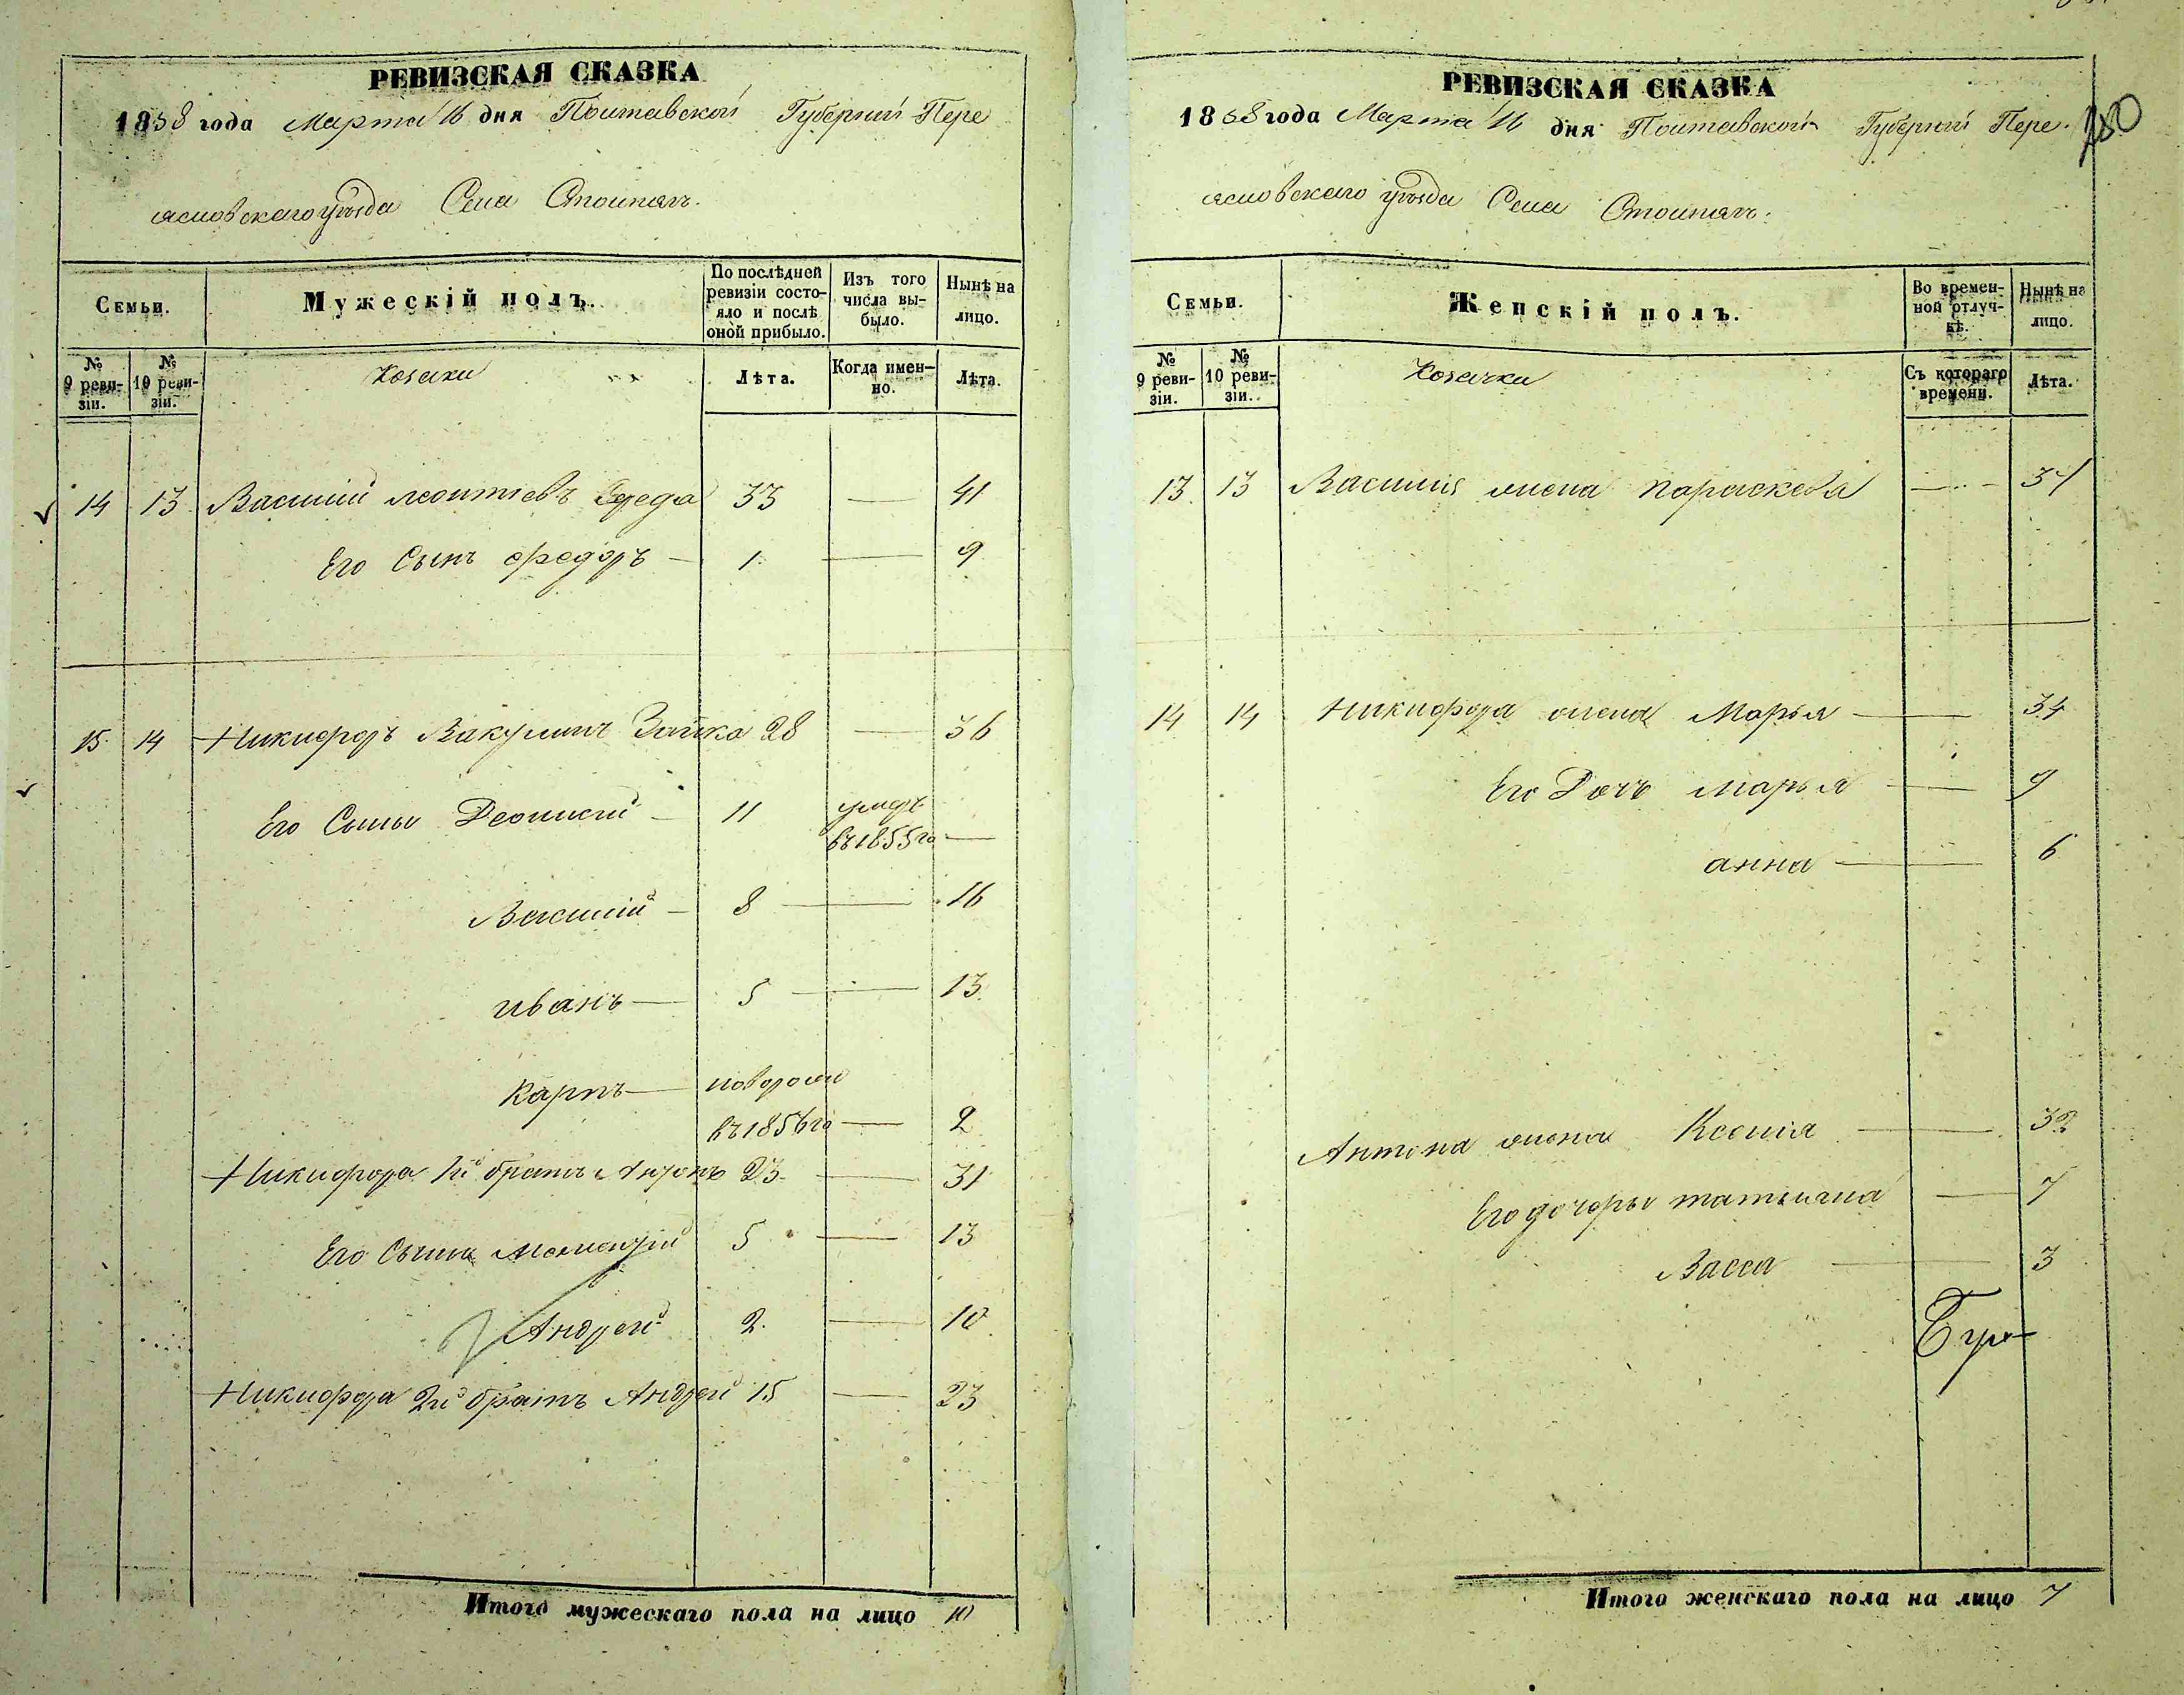 РЕВИЗСКАЯ СКАЗКА
1858 года Марта 16 дня Полтавской Губернии Пере
яславскаго уѣзда Села Столпягъ.
Семьи.
Мужескій полъ.
По послѣдней ревизіи состояло и послѣ оной прибыло.
Изъ того числа выбыло.
Нынѣ на лицо.
№ 9 ревизіи.
№ 10 ревизіи.
Козаки
Лѣта.
Когда именно.
Лѣта.
14 13 Василий Леонтіевъ 33 — 41
Его Сынъ Федоръ — 1 — 9
15. 14 Никифоръ Вакулинъ Заика 28 — 36
Его Сыны Деонисій — 11 умеръ
въ 1855 го —
Василій — 8 — 16
иванъ — 5 — 13
Карпъ — новорожд
въ 1856 го — 2
Никифора 1й братъ Антонъ 23 — 31
Его Сыны 5 — 13
Андрей 2. — 10
Никифора 2й братъ Андрей 15 — 23
Итого мужескаго пола на лицо 10
РЕВИЗСКАЯ СКАЗКА
1858 года Марта 16 дня Полтавской Губерніи Пере.
яславскаго уѣзда Села Столпягъ.
Семьи.
Женскій полъ.
Во временной отлучкѣ.
Нынѣ на лицо.
№ 9 ревизіи.
№ 10 ревизіи.
Козачки
Съ котораго времени.
Лѣта.
13. 13 Василія жена параскева —
14 14 Никифора жена Марья — 34
Его Дочъ марья — 9
анна — 6
Антона жена Ксенія — 32
Его дочеры татьяна — 7
Васса — 3
Итого женскаго пола на лицо 7